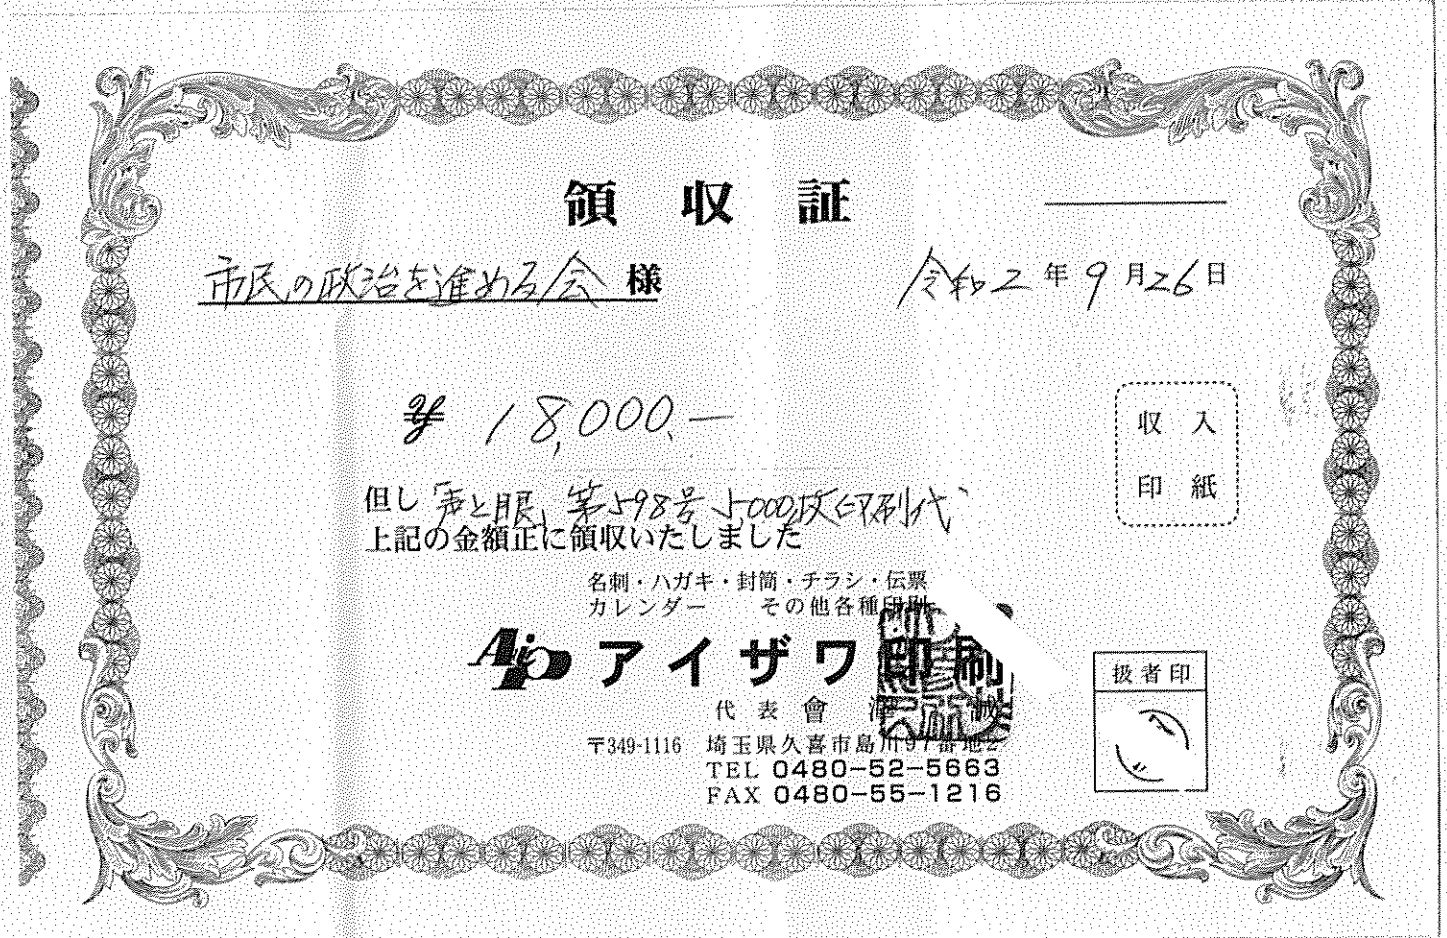 領収証
市民の政治を進める会 様
令和2年9月26日
¥ 18,000.—
収入
印紙
但し「声と眼」第598号 5,000枚印刷代
上記の金額正に領収いたしました
名刺・ハガキ・封筒・チラシ・伝票
カレンダー その他各種印刷
Aip アイザワ印刷
代表 會澤 誠
扱者印
〒349-1116 埼玉県久喜市島川97番地2
TEL 0480-52-5663
FAX 0480-55-1216